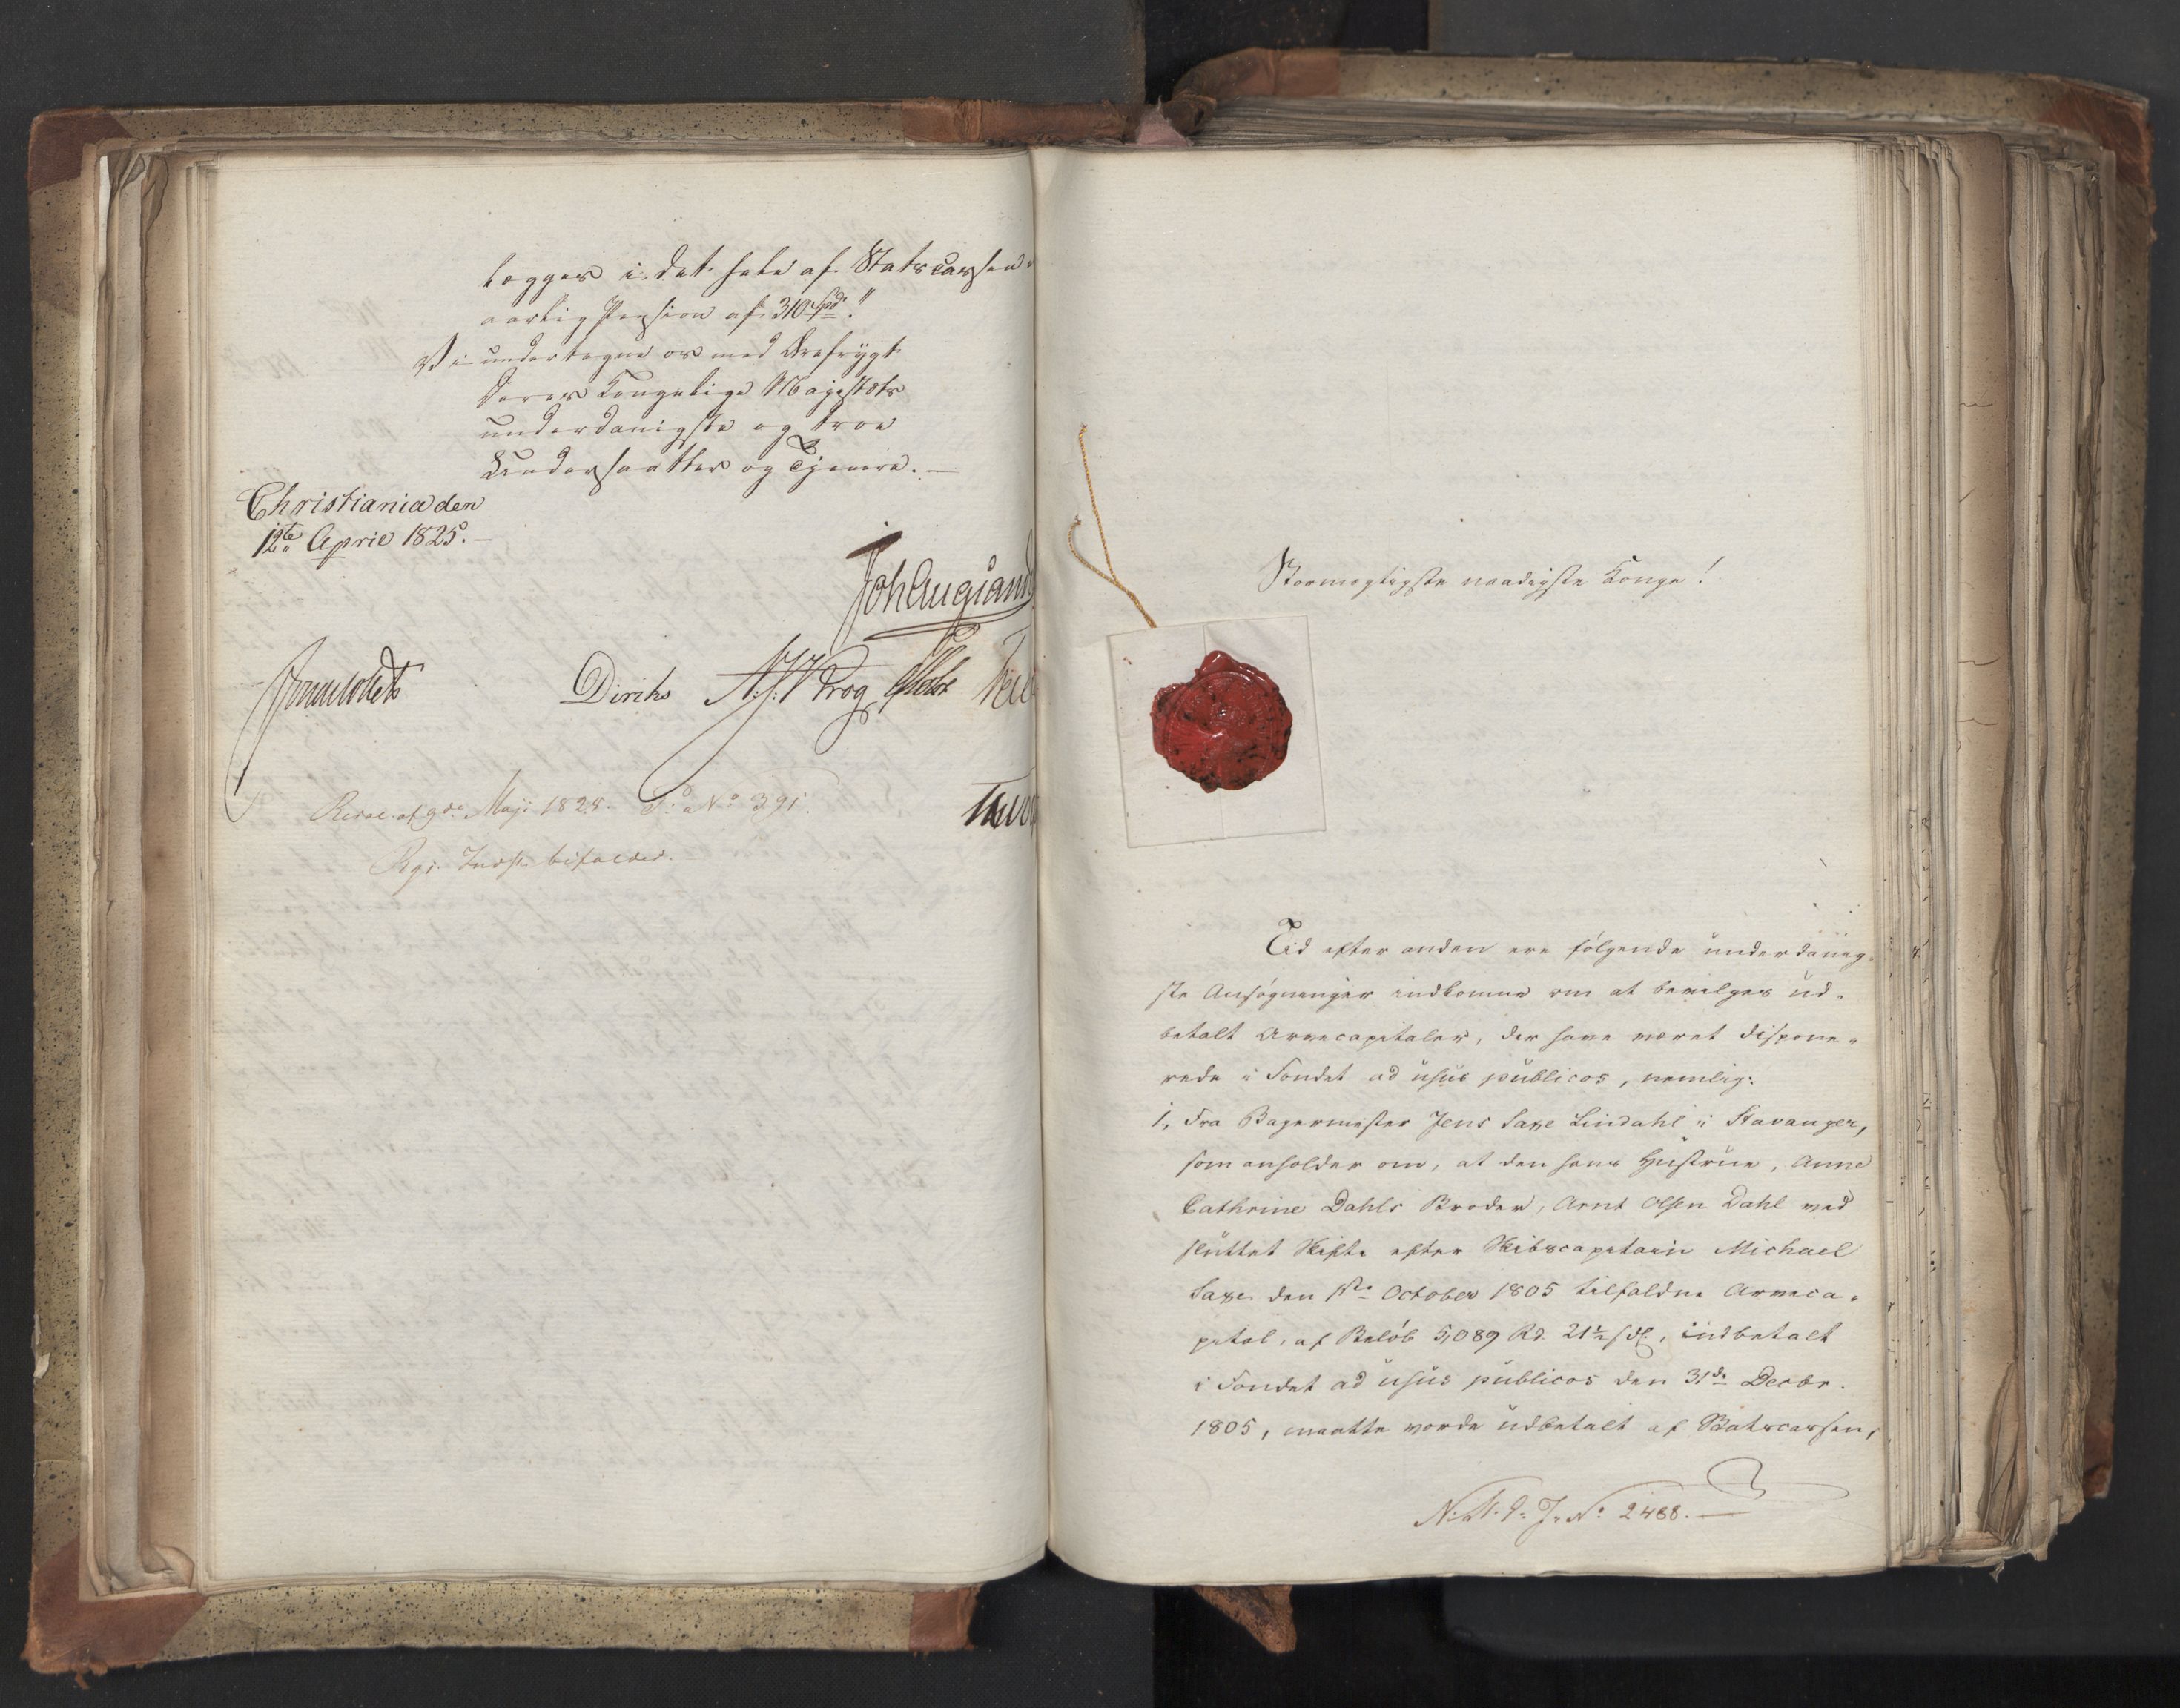 lægges i det hele af Statscassen
aarlig Pension af 310 Spd."
Vi undertegne os med Ærefrygt
Deres Kongelige Majestæts
underdanigste og troe
Undersaatter og Tjenere. —
Christiania den
12te April 1825. —
Joh Aug Sand
Diriks
Resol. af 9de Maji 1825. No 391.
Rgs. Indst. bifaldes.
Stormægtigste naadigste Konge!
Tid efter anden ere følgende underdanig-
ste Ansøgninger indkomne om at bevilges ud-
betalt Arvecapitaler, der have været dispone-
rede i Fondet ad usus publicos, nemlig:
1, Fra Bagermester Jens Saxe Lindahl i Stavanger,
som anholder om, at den hans Hustrue, Anne
Cathrine Dahls Broder, Arnt Olsen Dahl ved
sluttet Skifte efter Skibscapitain Michael
Saxe den 1ste October 1805 tilfaldne Arveca-
pital, af Beløb 5,089 Rd. 21½ sk, indbetalt
i Fondet ad usus publicos den 31de Decbr.
1805, maatte vorde udbetalt af Statscassen,
J. No 2488. —